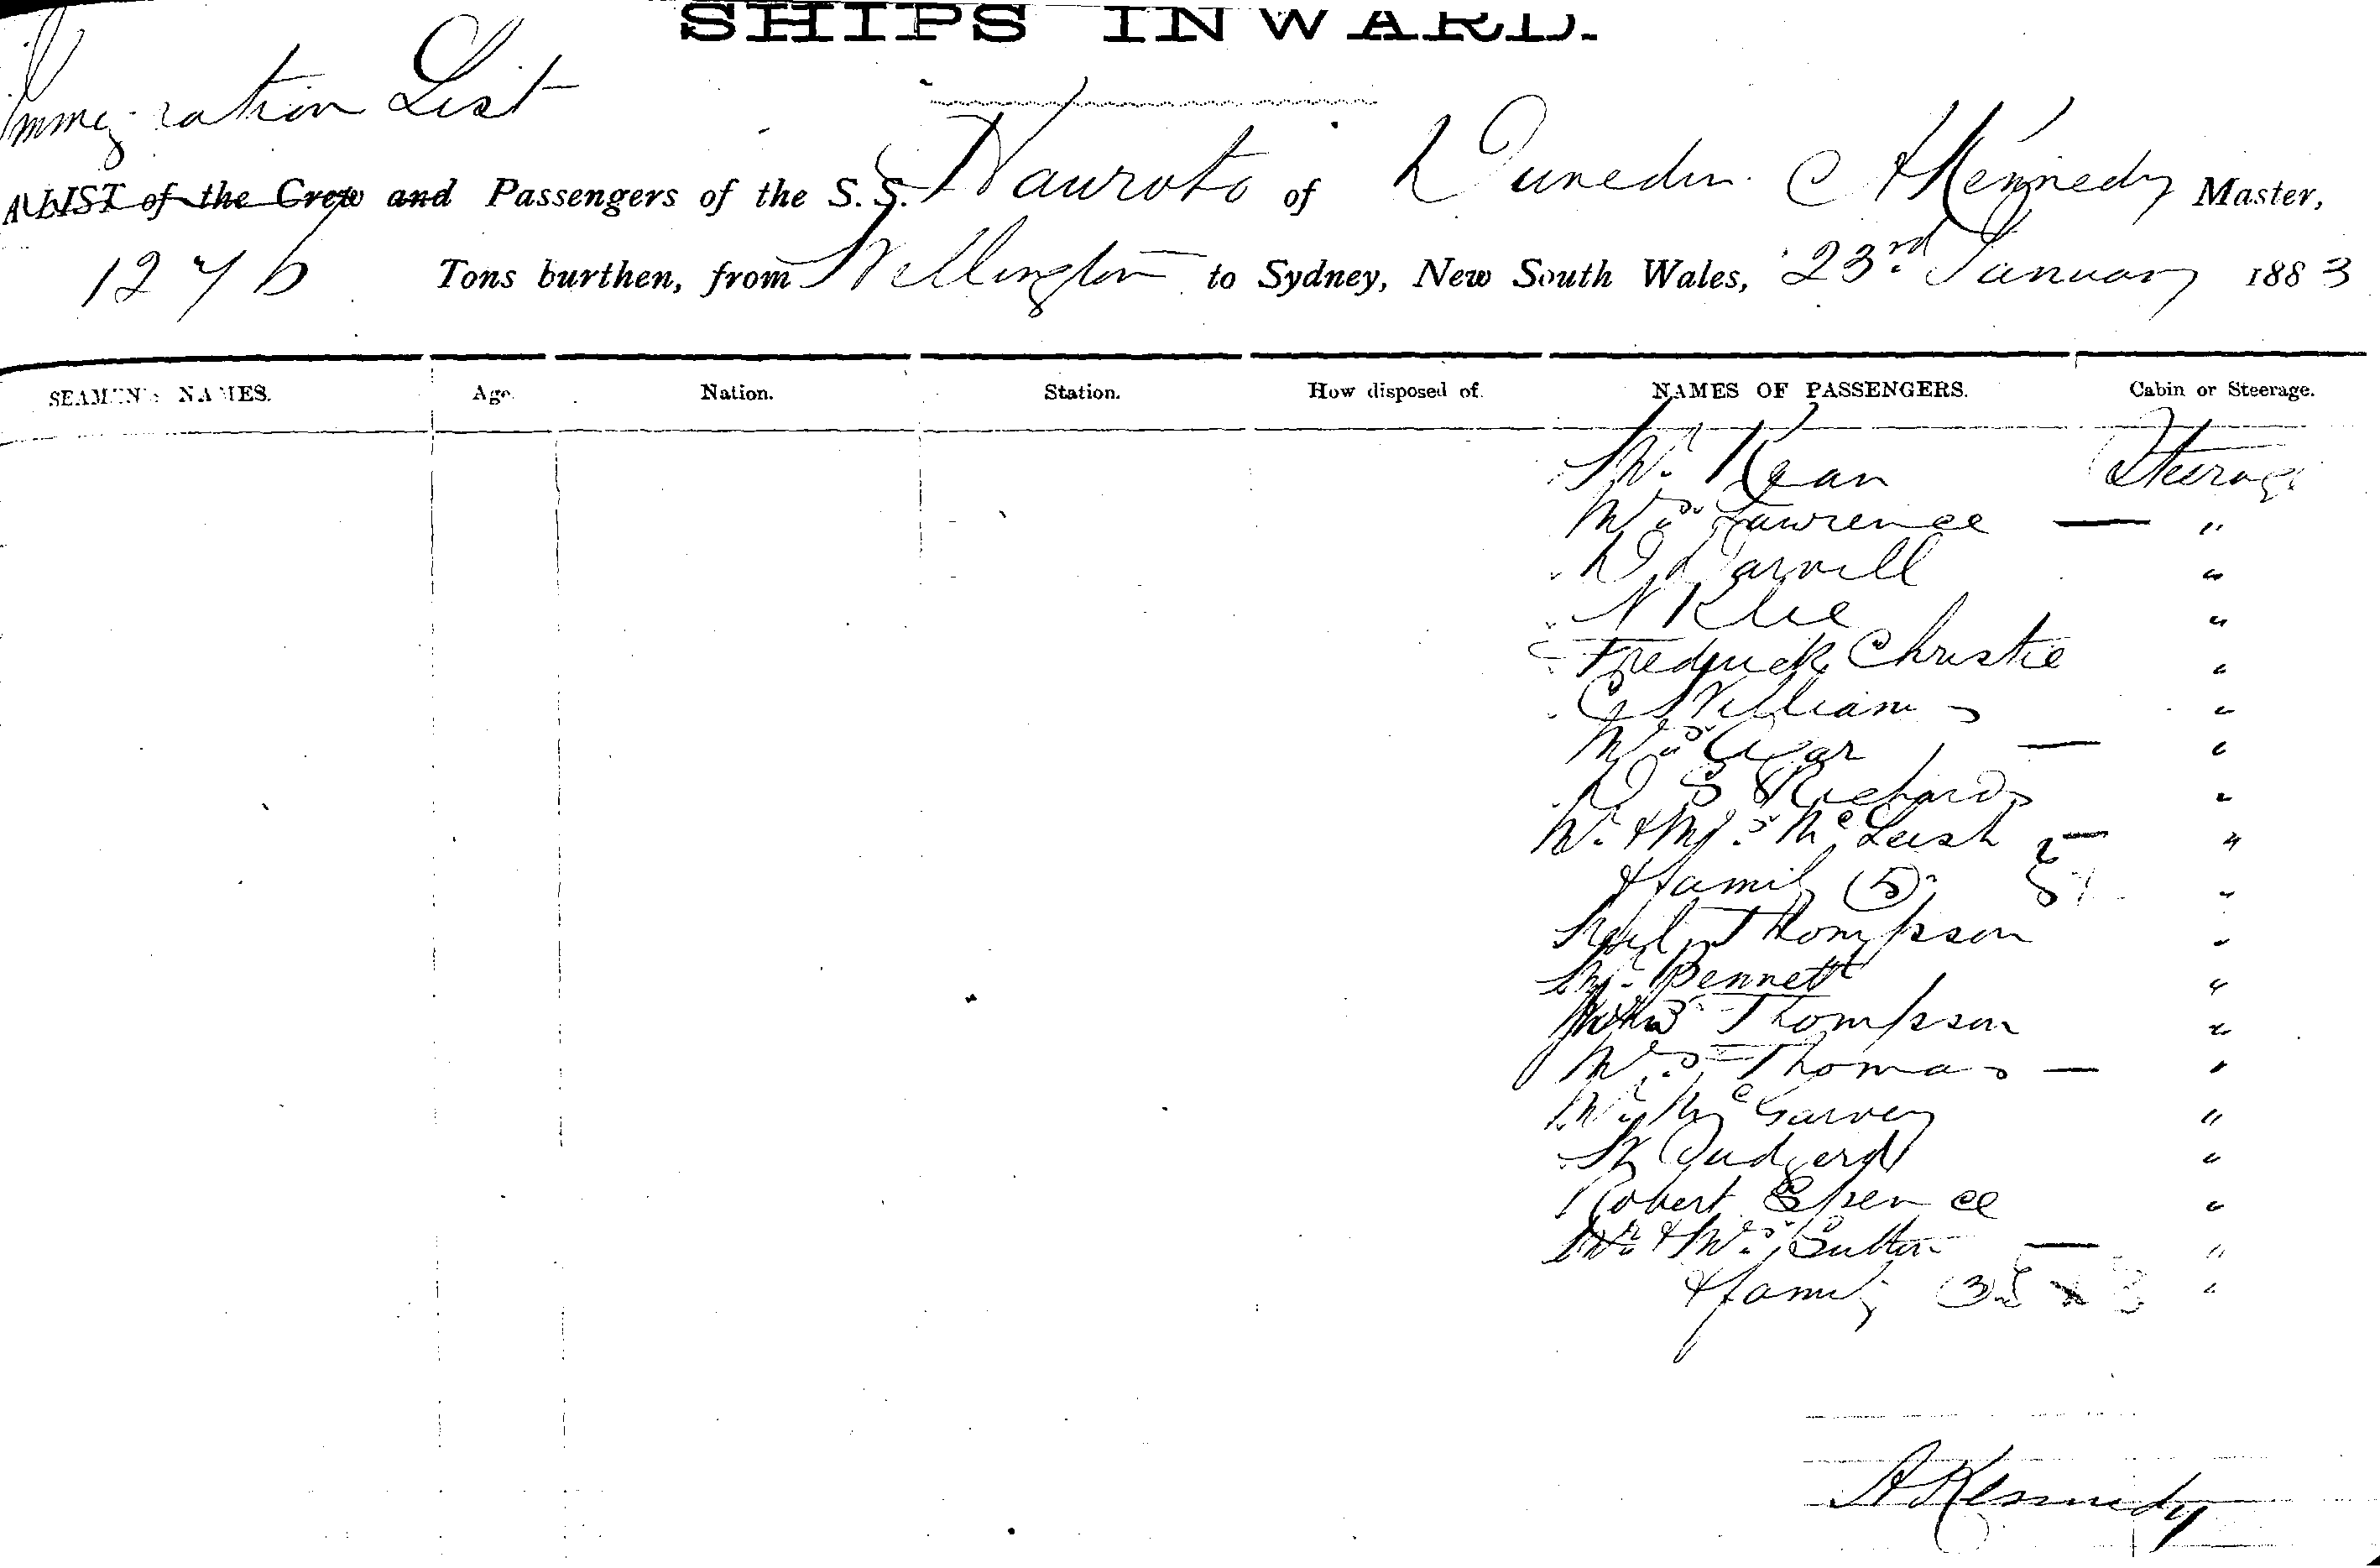 SHIPS INWARD.
Immigration List
A LIST of the Crew and Passengers of the S.S. Hauroto of Dunedin. C Kennedy Master,
1276 Tons burthen, from Wellington to Sydney, New South Wales, 23rd January 1883
SEAMEN'S NAMES. Age. Nation. Station. How disposed of. NAMES OF PASSENGERS. Cabin or Steerage.
Mr. Kean Steerage
Mrs Lawrence — "
D Darvill "
N Klie "
Fredrick Christie "
C Williams "
Mrs — "
D S Richards "
Mr. & Mrs. McLeish — "
& family (5) "
Thompson "
Mr. Bennett "
Thompson "
Mrs. Thomas — "
Mr McGarvey "
"
Robert Spence "
Mr. & Mrs. Sutton — "
& family (3) "
A Kennedy